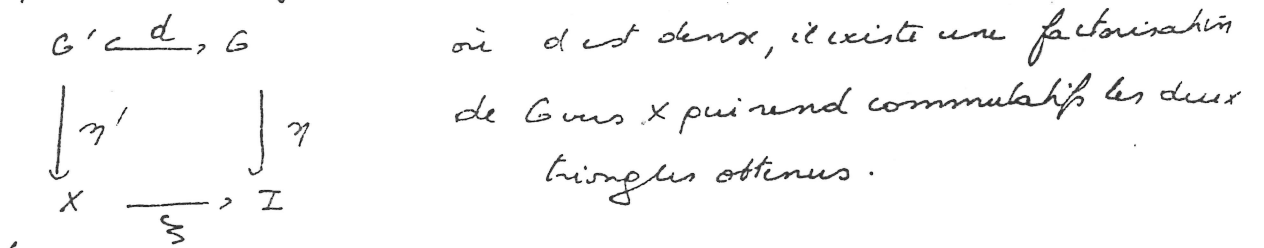 G' d G où d est dense, il existe une factorisation
η' η de G vers X qui rend commutatifs les deux
X ξ I triangles obtenus.